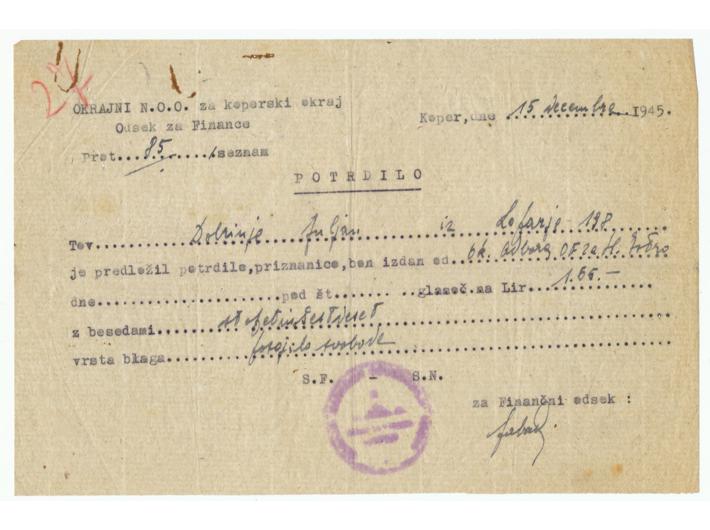 27
OKRAJNI N.O.O. za koperski okraj
Odsek za Finance
Koper, dne 15 decembra 1945.
Prot....85......seznam
POTRDILO
Tov. Dobrinje Juljan iz 198
je predložil potrdilo,priznanico,bon izdan od.. ok. odbora OF za
dne....................pod št....... ..glaseč na Lir.. 1.65.-
z besedami stopetinšestdeset
vrsta blaga posojilo svobode
S.F. - S.N.
za Finančni odsek :